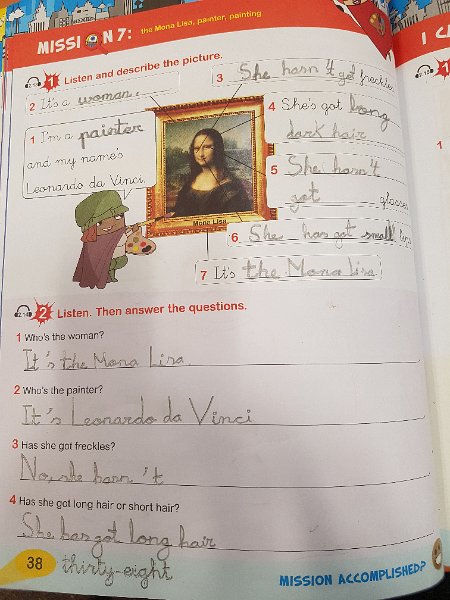 MISSION 7: the Mona Lisa, painter, painting
1 Listen and describe the picture.
2 It's a woman.
3 She hasn't got freckles
1 I'm a painter
and my name's
Leonardo da Vinci.
4 She's got long
dark hair
5 She hasn't
got glasses
Mona Lisa
6 She has got small lips
7 It's the Mona Lisa
2 Listen. Then answer the questions.
1 Who's the woman?
It's the Mona Lisa.
2 Who's the painter?
It's Leonardo da Vinci
3 Has she got freckles?
No, she hasn't
4 Has she got long hair or short hair?
She has got long hair
38 thirty-eight
MISSION ACCOMPLISHED?
I CA
1